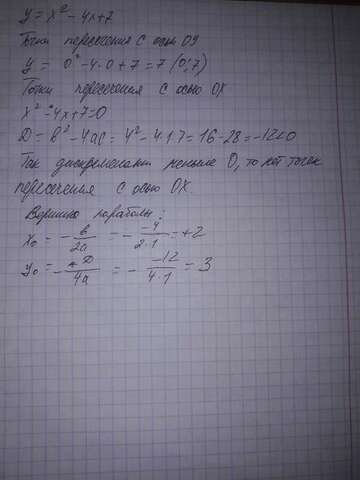 y = x² - 4x + 7
Точки пересечения с осью OY
y = 0² - 4·0 + 7 = 7 (0;7)
Точки пересечения с осью OX
x² - 4x + 7 = 0
D = b² - 4ac = 4² - 4·1·7 = 16 - 28 = -12 < 0
Так дискриминант меньше 0, то нет точек
пересечения с осью OX
Вершина параболы:
x₀ = - b/2a = - -4/2·1 = +2
y₀ = - D/4a = - -12/4·1 = 3